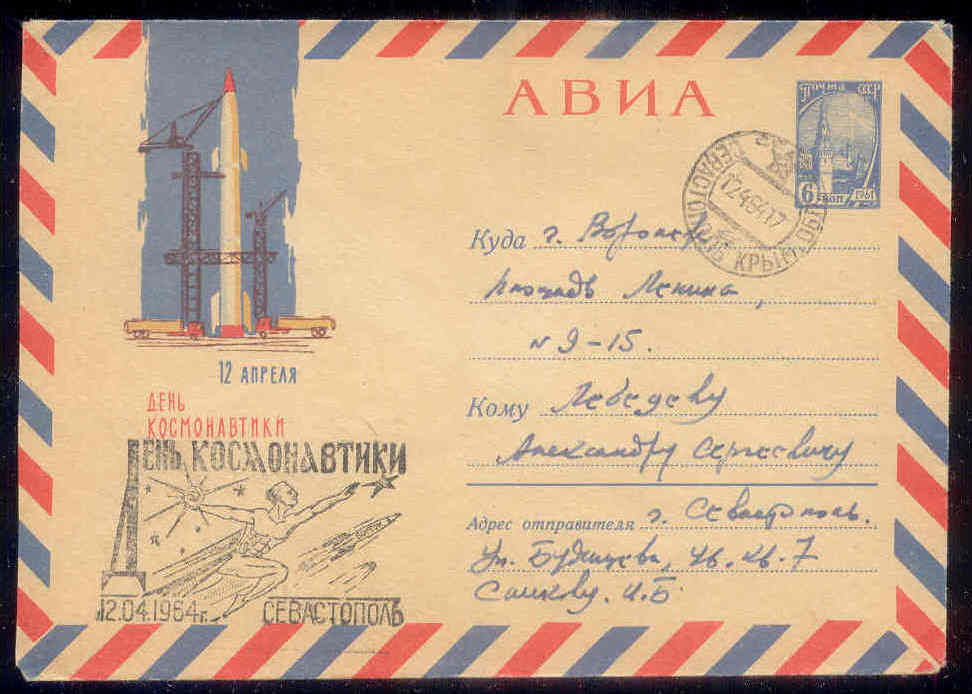 АВИА
Почта СССР
6 коп 1961
СЕВАСТОПОЛЬ КРЫМ
12 АПРЕЛЯ
ДЕНЬ
КОСМОНАВТИКИ
ДЕНЬ КОСМОНАВТИКИ
12.04.1964г. СЕВАСТОПОЛЬ
Куда г. Воронеж
площадь Ленина,
№ 9-15.
Кому Лебедеву
Александру Сергеевичу
Адрес отправителя г. Севастополь.
Ул. 7
И.Б.